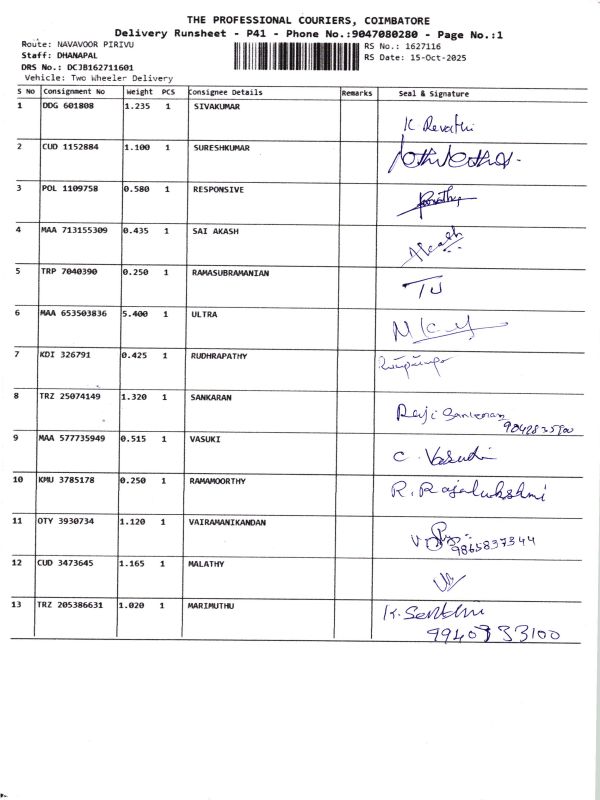 THE PROFESSIONAL COURIERS, COIMBATORE
Delivery Runsheet - P41 - Phone No.:9047080280 - Page No.:1
Route: NAVAVOOR PIRIVU RS No.: 1627116
Staff: DHANAPAL RS Date: 15-Oct-2025
DRS No.: DCJB162711601
Vehicle: Two Wheeler Delivery
S No Consignment No Weight PCS Consignee Details Remarks Seal & Signature
1 DDG 601808 1.235 1 SIVAKUMAR
K Revathi
2 CUD 1152884 1.100 1 SURESHKUMAR
3 POL 1109758 0.580 1 RESPONSIVE
4 MAA 713155309 0.435 1 SAI AKASH
Akash
5 TRP 7040390 0.250 1 RAMASUBRAMANIAN
6 MAA 653503836 5.400 1 ULTRA
7 KDI 326791 0.425 1 RUDHRAPATHY
8 TRZ 25074149 1.320 1 SANKARAN
Raji Sankaran
9 MAA 577735949 0.515 1 VASUKI
C. Vasuki
10 KMU 3785178 0.250 1 RAMAMOORTHY
R. Rajalukshmi
11 OTY 3930734 1.120 1 VAIRAMANIKANDAN
9865837344
12 CUD 3473645 1.165 1 MALATHY
13 TRZ 205386631 1.020 1 MARIMUTHU
K. Senthil